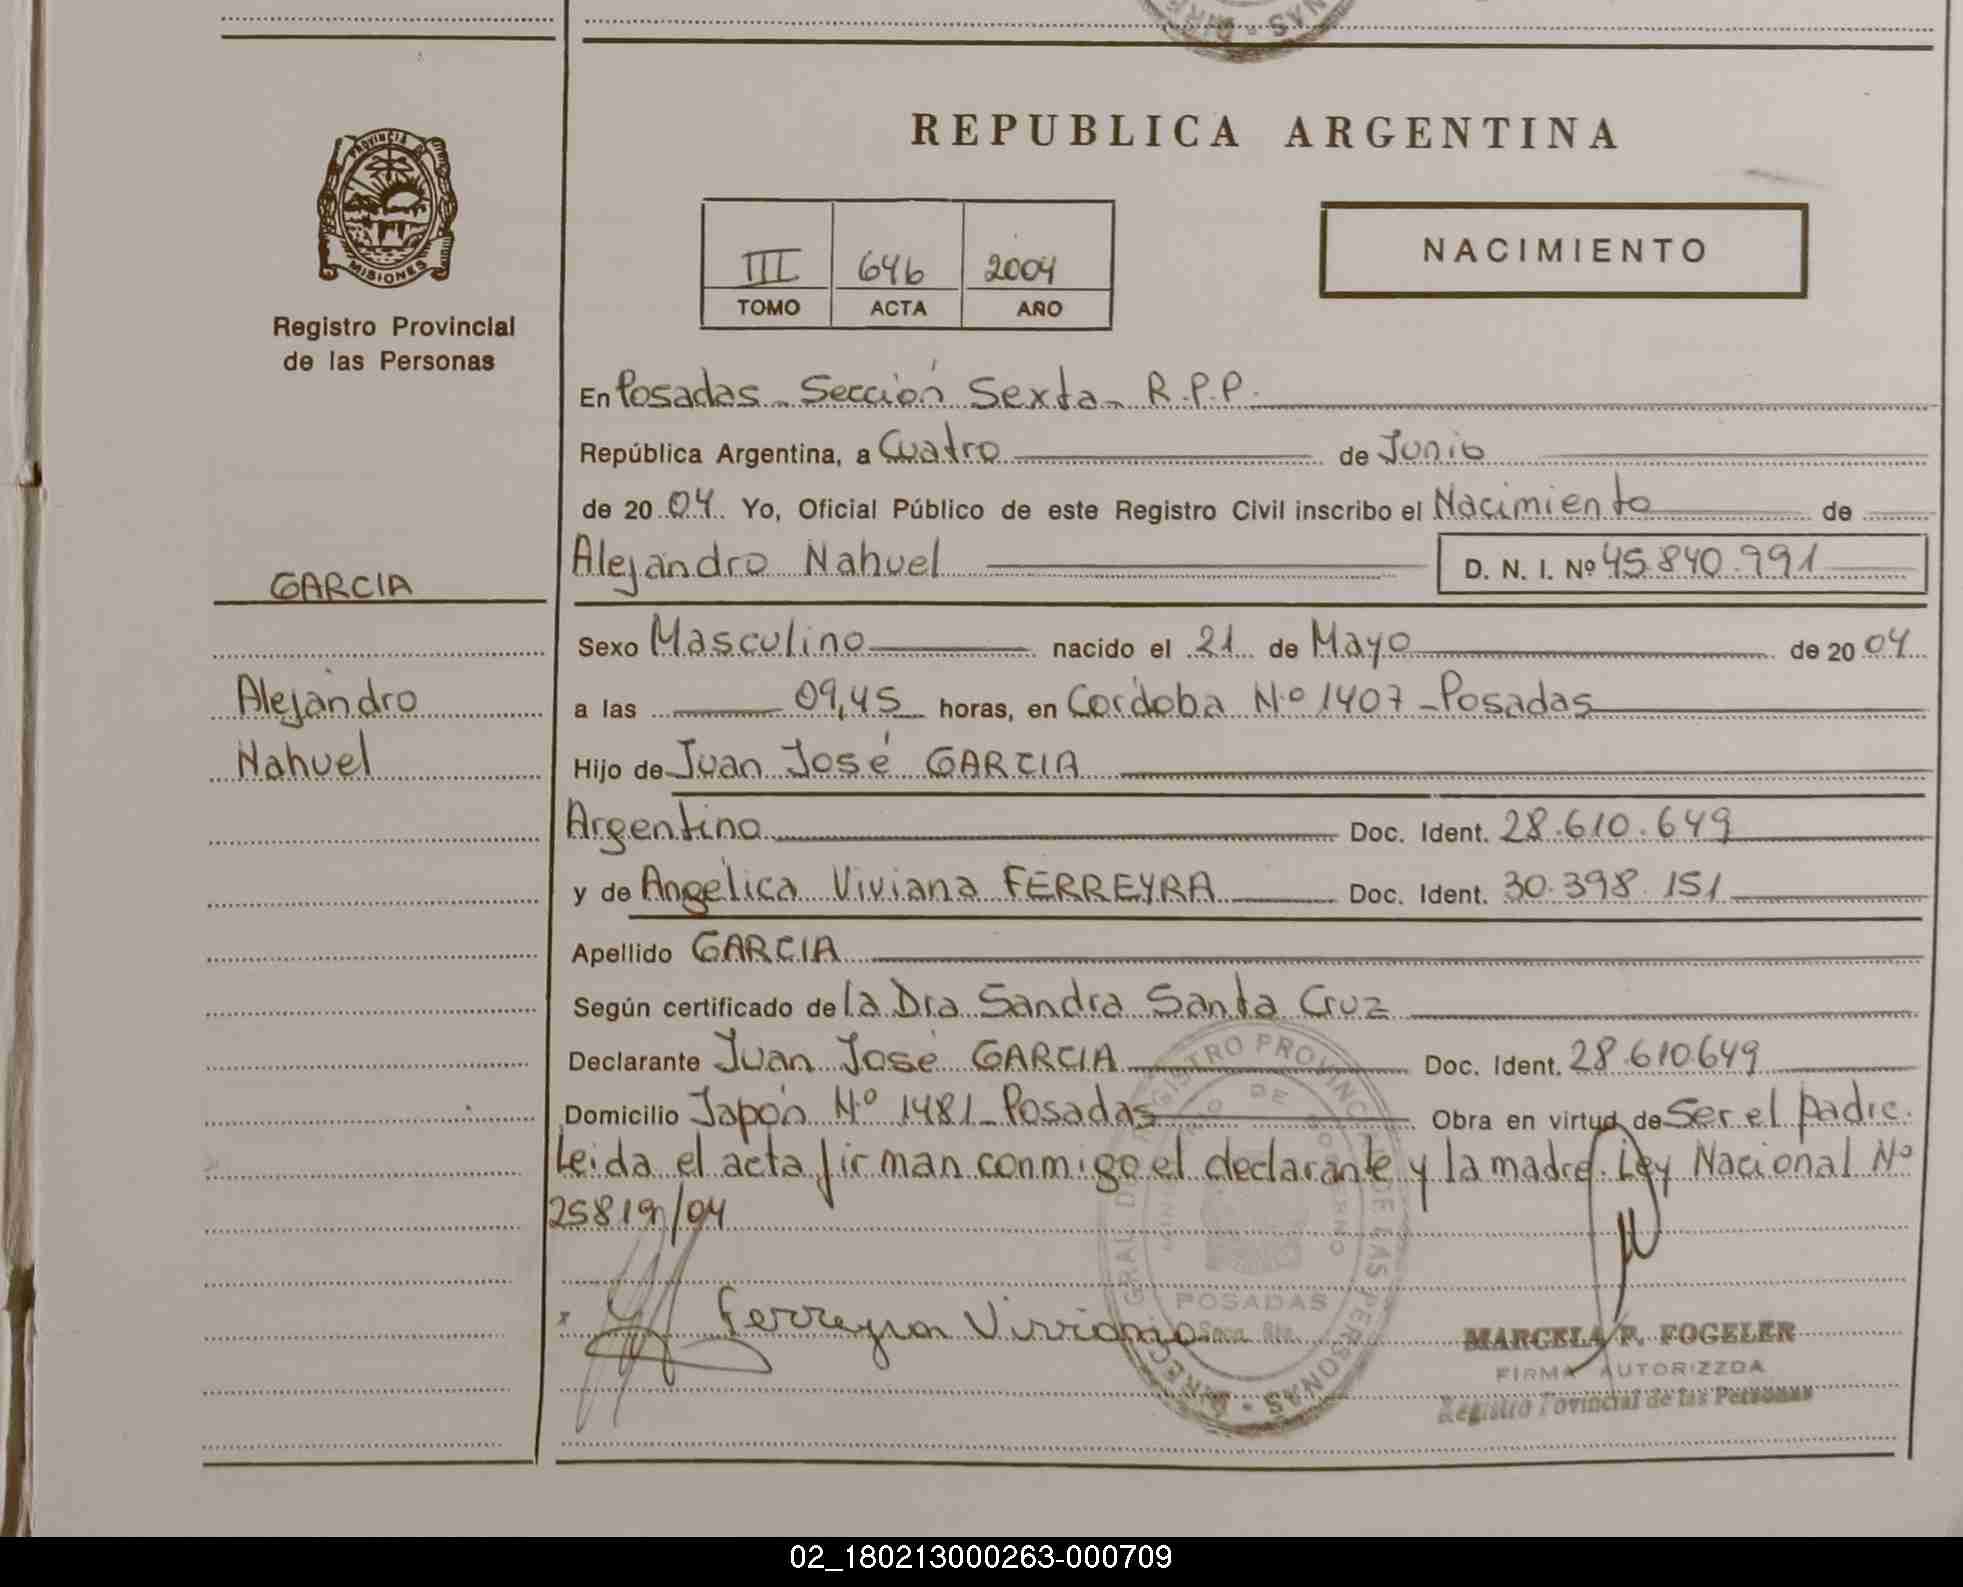 REPUBLICA ARGENTINA
PROVINCIA DE MISIONES
Registro Provincial
de las Personas
III 646 2004
TOMO ACTA AÑO
NACIMIENTO
En Posadas - Sección Sexta - R.P.P.
República Argentina, a Cuatro de Junio
de 2004 Yo, Oficial Público de este Registro Civil inscribo el Nacimiento de
GARCIA
Alejandro Nahuel D. N. I. Nº 45.840.991
Sexo Masculino nacido el 21 de Mayo de 2004
Alejandro
a las 09,45 horas, en Cordoba Nº 1407 - Posadas
Nahuel
Hijo de Juan José GARCIA
Argentino Doc. Ident. 28.610.649
y de Angélica Viviana FERREYRA Doc. Ident. 30.398.151
Apellido GARCIA
Según certificado de la Dra Sandra Santa Cruz
Declarante Juan José GARCIA Doc. Ident. 28.610.649
Domicilio Japón Nº 1481 - Posadas Obra en virtud de Ser el padre.
Leida el acta firman conmigo el declarante y la madre. Ley Nacional Nº
25819/04
Ferreyra Viviana
REGISTRO PROVINCIAL DE LAS PERSONAS
POSADAS
MARCELA P. FOGELER
FIRMA AUTORIZZDA
Registro Provincial de las Personas
02_180213000263-000709